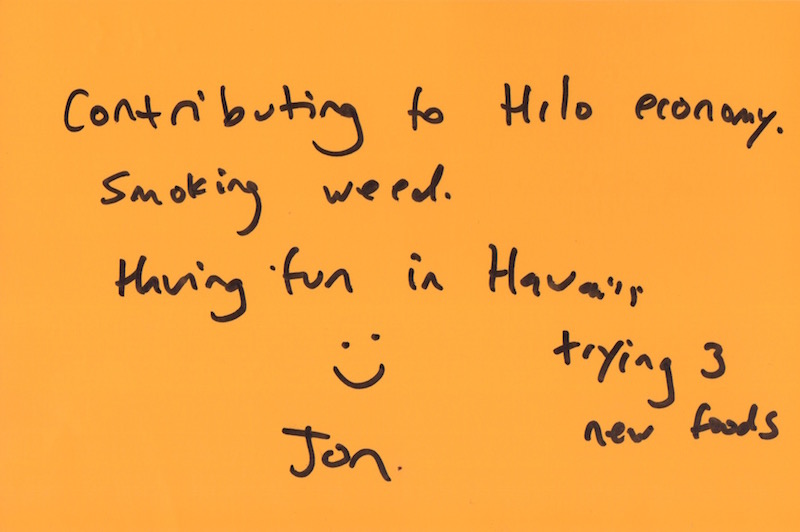 Contributing to Hilo economy.
Smoking weed.
Having fun in Hawai'i,
trying 3
new foods
Jon.